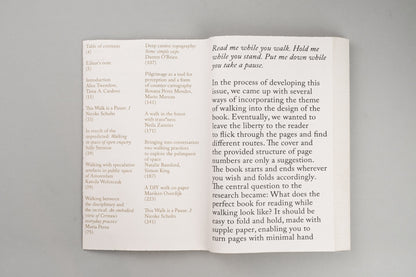 Table of contents
(4)
Editor's note
(5)
Introduction
Alice Twemlow,
Tânia A. Cardoso
(11)
This Walk is a Pause: I
Nicoke Schults
(21)
In search of the
unpredicted: Walking
as space of open enquiry
Julie Svenson
(29)
Walking with speculative
artefacts in public space
of Amsterdam
Kamila Wolszczak
(59)
Walking between
the disciplines and
the tactical: the embodied
view of German's
everyday practice
Maria Persu
(75)
Deep canine topography:
Some simple steps
Darren O'Brien
(107)
Pilgrimage as a tool for
perception and a form
of counter cartography
Rosana Pérez Méndez,
Mario Matoso
(141)
A walk in the forest
with trans*ness
Neila Zannier
(171)
Bringing into conversation
two walking practices
to explore the palimpsest
of space
Natalie Bamford,
Simon King
(187)
A DIY walk on paper
Marileen Overdijk
(223)
This Walk is a Pause: I
Nicoke Schults
(241)
Read me while you walk. Hold me
while you stand. Put me down while
you take a pause.
In the process of developing this
issue, we came up with several
ways of incorporating the theme
of walking into the design of the
book. Eventually, we wanted to
leave the liberty to the reader
to flick through the pages and find
different routes. The cover and
the provided structure of page
numbers are only a suggestion.
The book starts and ends wherever
you wish and folds accordingly.
The central question to the
research became: What does the
perfect book for reading while
walking look like? It should be
easy to fold and hold, made with
supple paper, enabling you to
turn pages with minimal hand